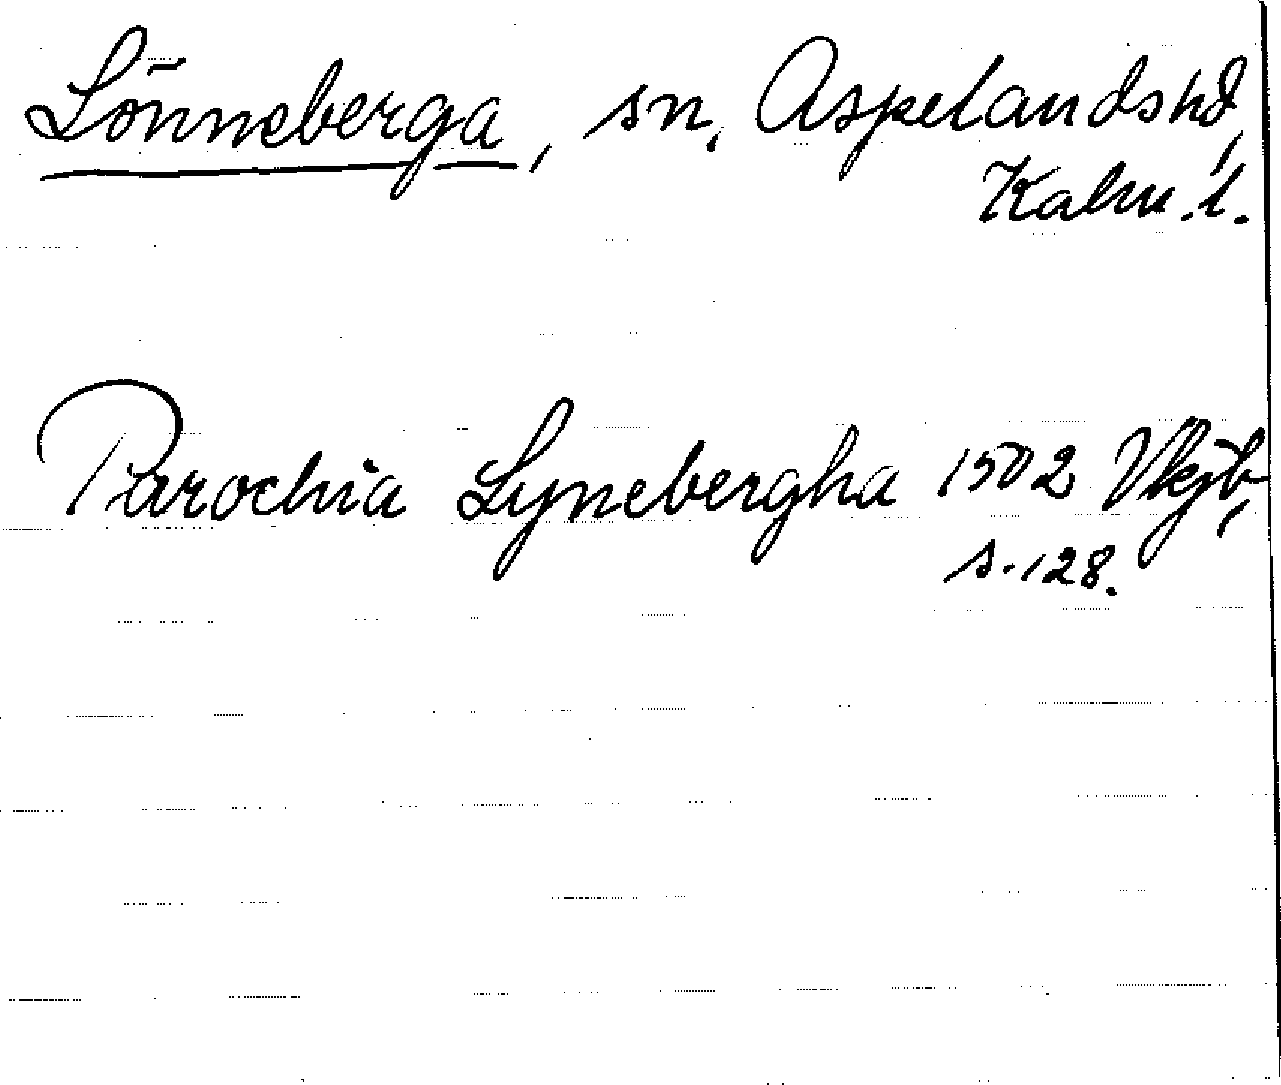 Lönneberga, sn, Aspelandshd,
Kalm. l.
Parochia Lynebergha 1502 Vkjb,
s. 128.